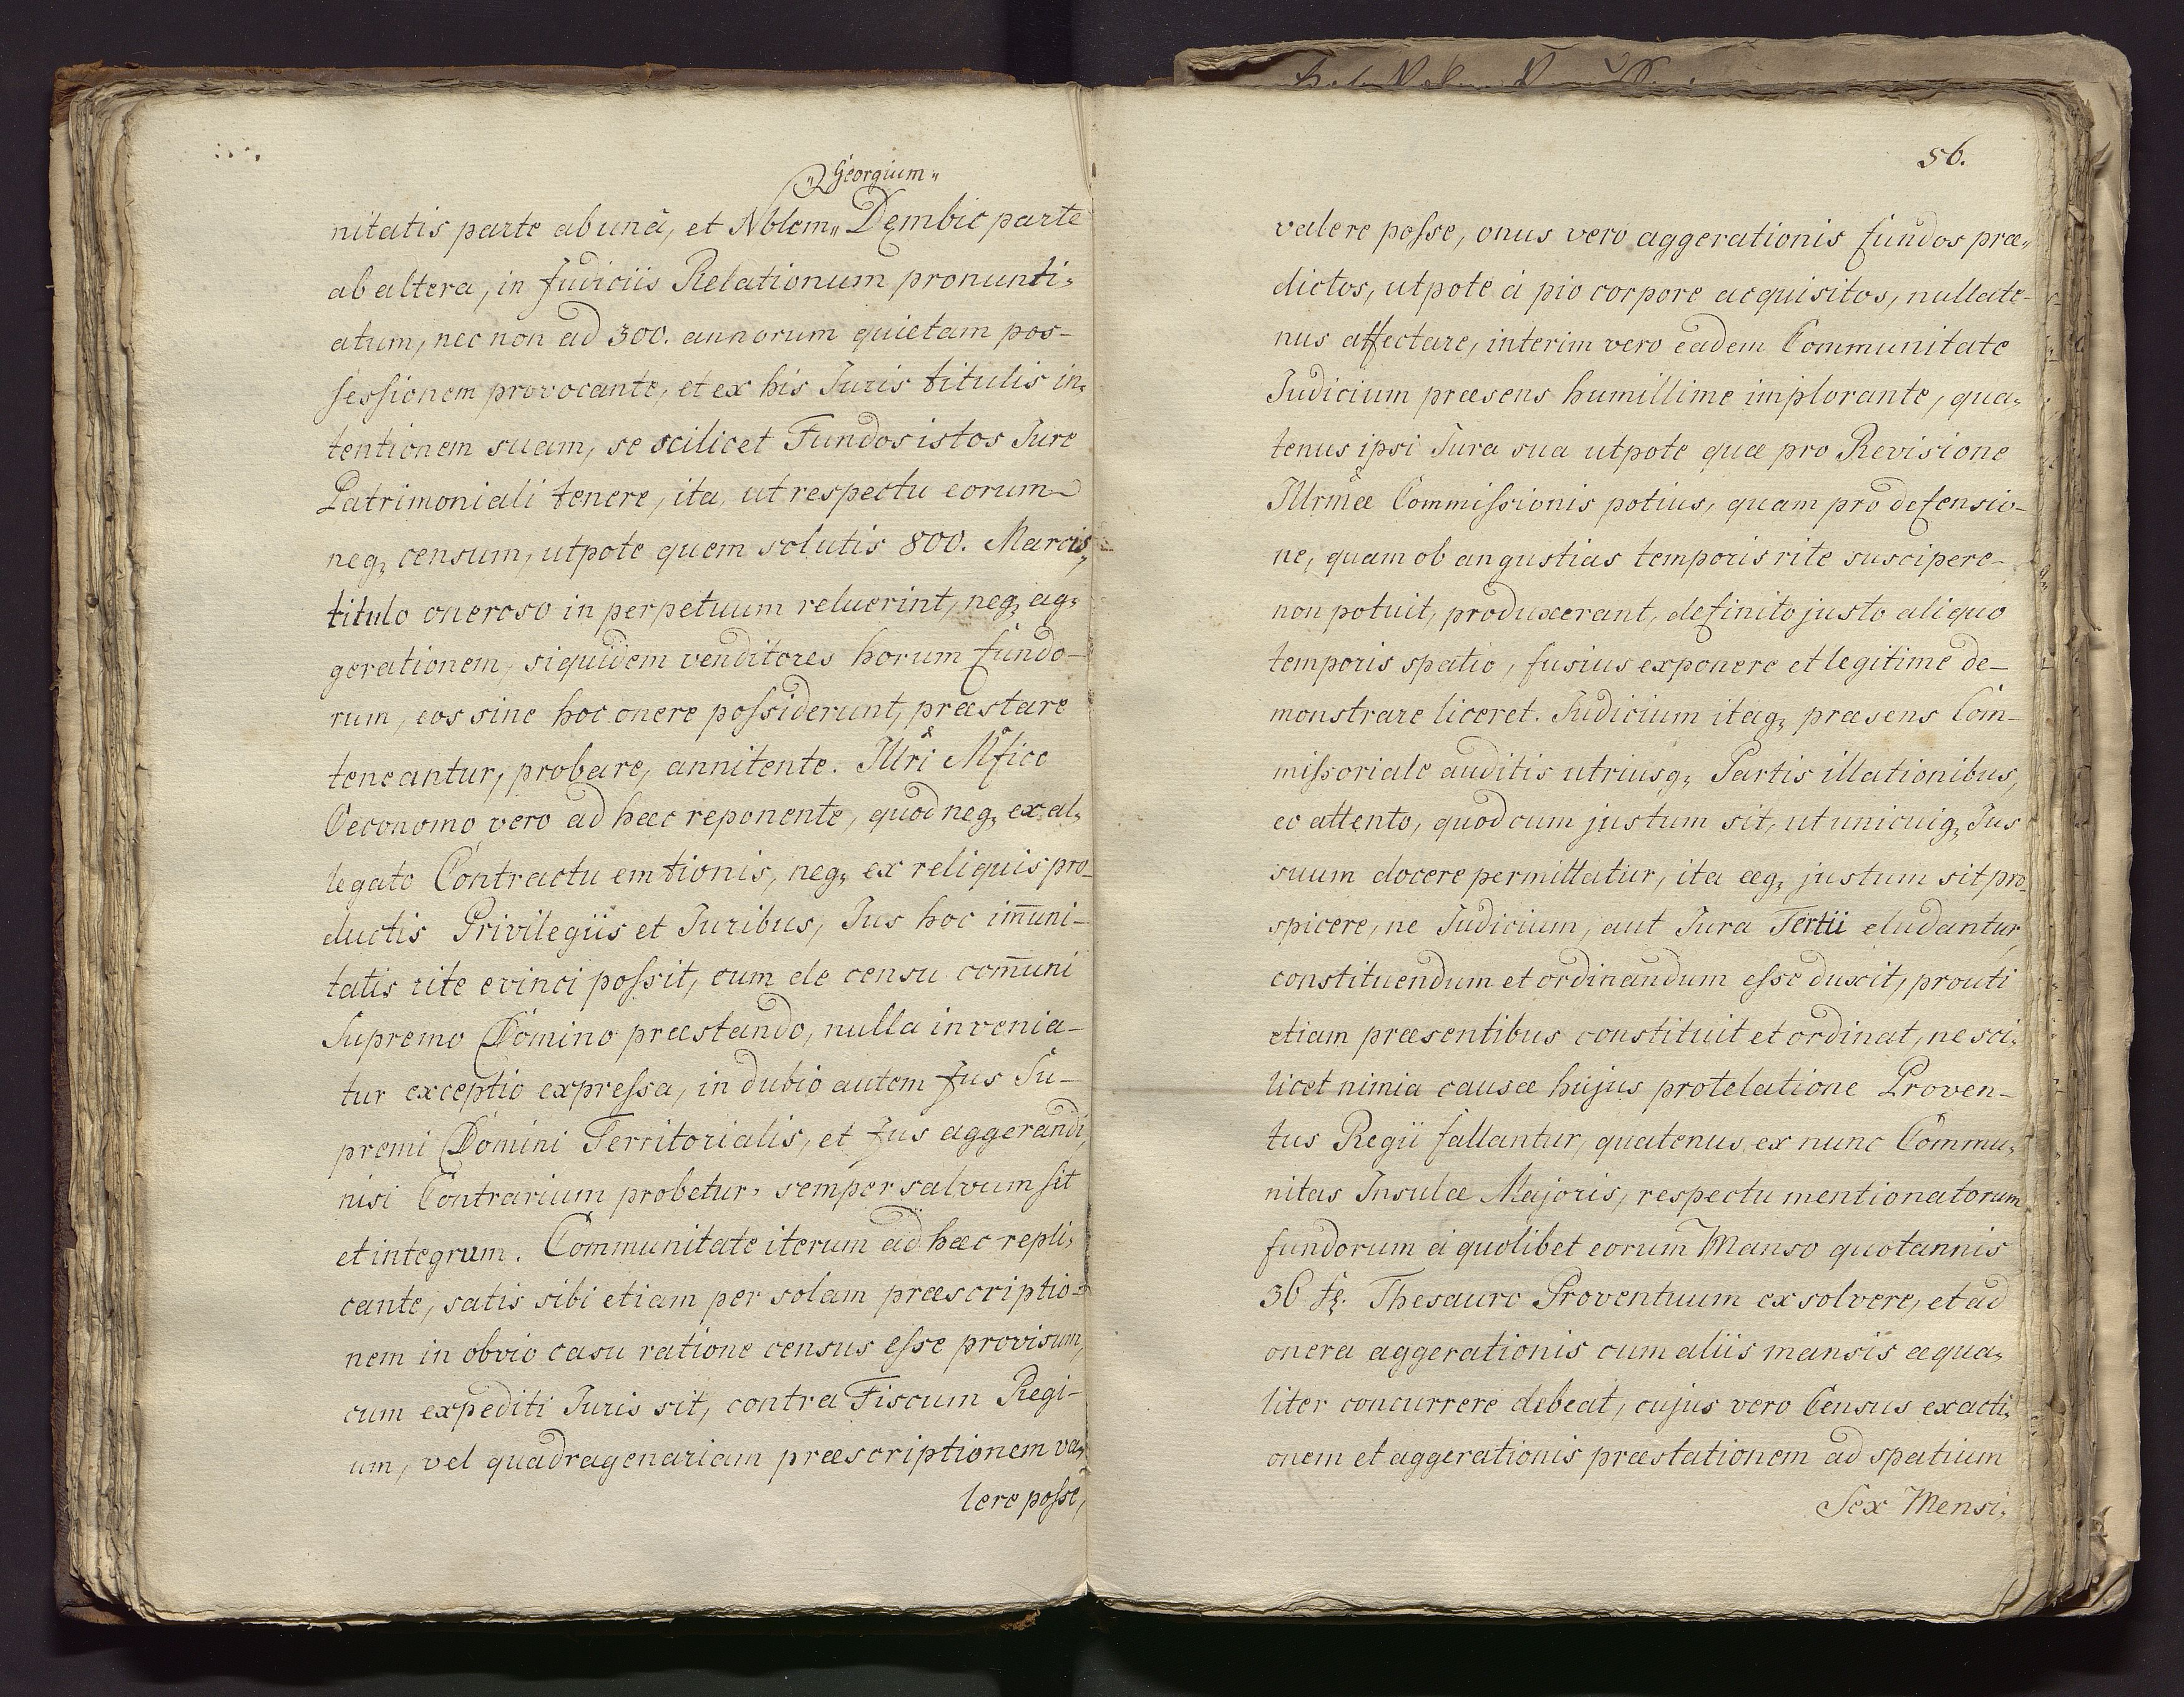 „Georgium„
nitatis parte ab unâ, et Nblem„ Dembic parte
ab altera, in Judiciis Relationum pronunti=
atum, nec non ad 300. annorum quietam pos-
sessionem provocante, et ex his Juris titulis in=
tentionem suam, se scilicet Fundos istos Jure
Patrimoniali tenere, ita, ut respectu eorum
neq, censum, utpote quem solutis 800. Marcis,
titulo oneroso in perpetuum reluerint, neq, ag=
gerationem, siquidem venditores horum fundo-
rum, eos sine hoc onere possiderunt, præstare
teneantur, probare, annitente. Illri Mfico
Oeconomo vero ad hæc reponente, quod neq, ex al=
legato Contractu emtionis, neq, ex reliquis pro-
ductis Privilegiis et Juribus, Jus hoc im̄uni-
tatis rite evinci possit, cum de censu com̄uni
Supremo Domino præstando, nulla invenia-
tur exceptio expressa, in dubio autem Jus Su-
premi Domini Territorialis, et Jus aggerandi,
nisi Contrarium probetur, semper salvum sit
et integrum. Communitate iterum ad hæc repli=
cante, satis sibi etiam per solam præscriptio=
nem in obvio casu ratione census esse provisum,
cum expediti Juris sit, contra Fiscum Regi-
um, vel quadragenariam præscriptionem va=
lere posse,
56.
valere posse, onus vero aggerationis fundos præ„
dictos, utpote à pio corpore acquisitos, nullate-
nus affectare, interim vero eadem Communitate
Judicium præsens humillime implorante, qua=
tenus ipsi Jura sua utpote quæ pro Revisione
Illrmæ Commissionis potius, quam pro defensio-
ne, quam ob angustias temporis rite suscipere
non potuit, produxerant, definito justo aliquo
temporis spatio, fusius exponere et legitime de-
monstrare liceret. Judicium itaq, præsens Com-
missoriale auditis utriusq, Partis illationibus,
eo attento, quod cum justum sit, ut unicuiq, Jus
suum docere permittatur, ita æq, justum sit pro-
spicere, ne Judicium, aut Jura Tertii eludantur,
constituendum et ordinandum esse duxit, prouti
etiam præsentibus constituit et ordinat, ne sci=
licet nimia causæ hujus protelatione Proven-
tus Regii fallantur, quatenus ex nunc Commu=
nitas Insulæ Majoris, respectu mentionatorum
fundorum à quolibet eorum Manso quotannis
36 fl. Thesauro Proventuum exsolvere, et ad
onera aggerationis cum aliis mansis æqua=
liter concurrere debeat, cujus vero Census exacti=
onem et aggerationis præstationem ad spatium
Sex Mensi=